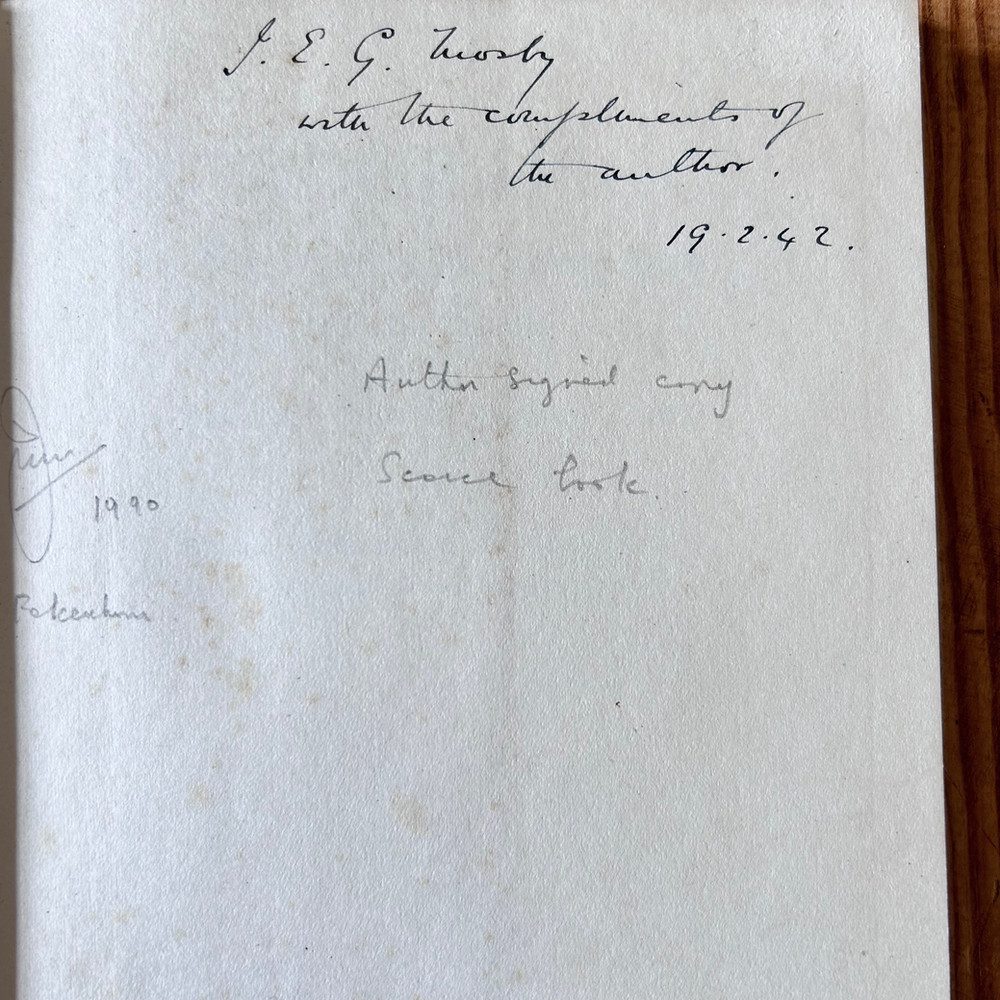 J. E. G. Mosby
with the compliments of
the author.
19.2.42.
Author signed copy
Scarce book.
1990
Fakenham